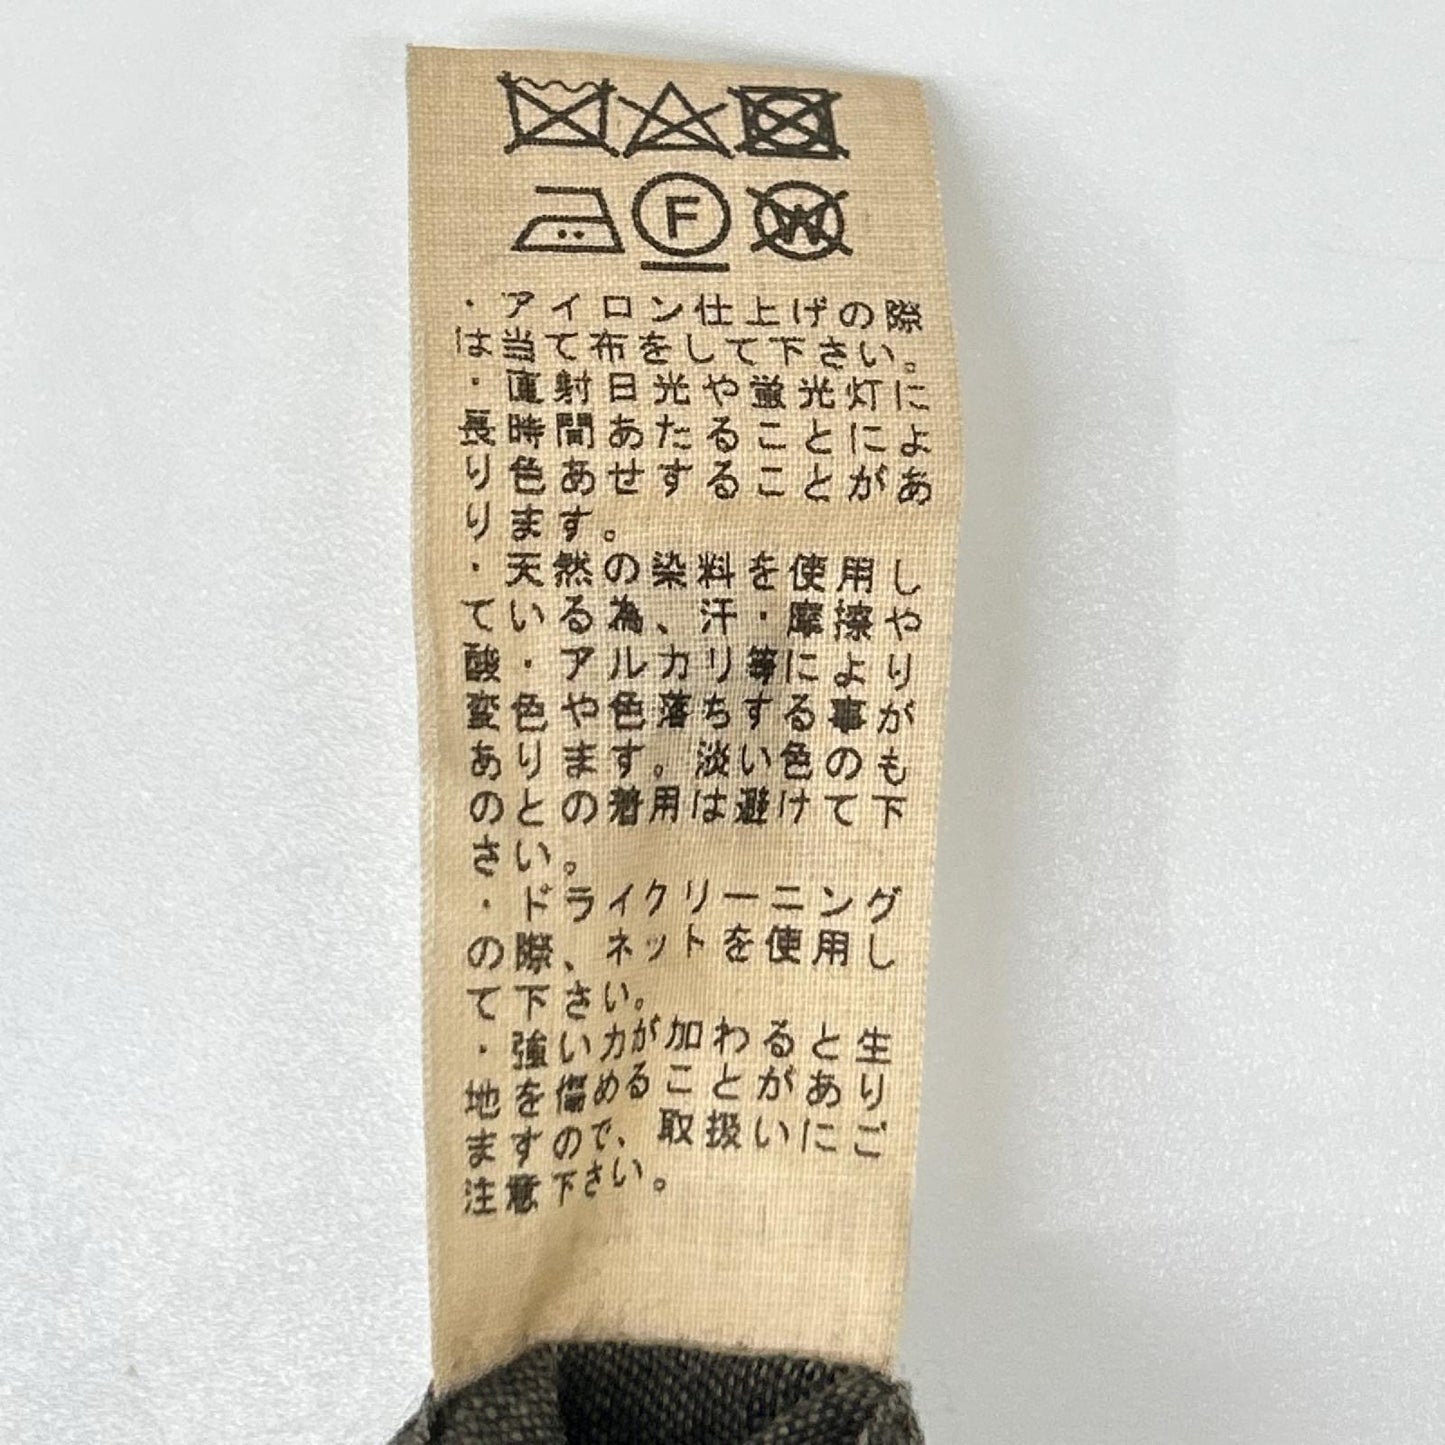 F W
・アイロン仕上げの際
は当て布をして下さい。
・直射日光や蛍光灯に
長時間あたることによ
り色あせすることがあ
ります。
・天然の染料を使用し
ている為、汗・摩擦や
酸・アルカリ等により
変色や色落ちする事が
あります。淡い色のも
のとの着用は避けて下
さい。
・ドライクリーニング
の際、ネットを使用し
て下さい。
・強い力が加わると生
地を傷めることがあり
ますので、取扱いにご
注意下さい。